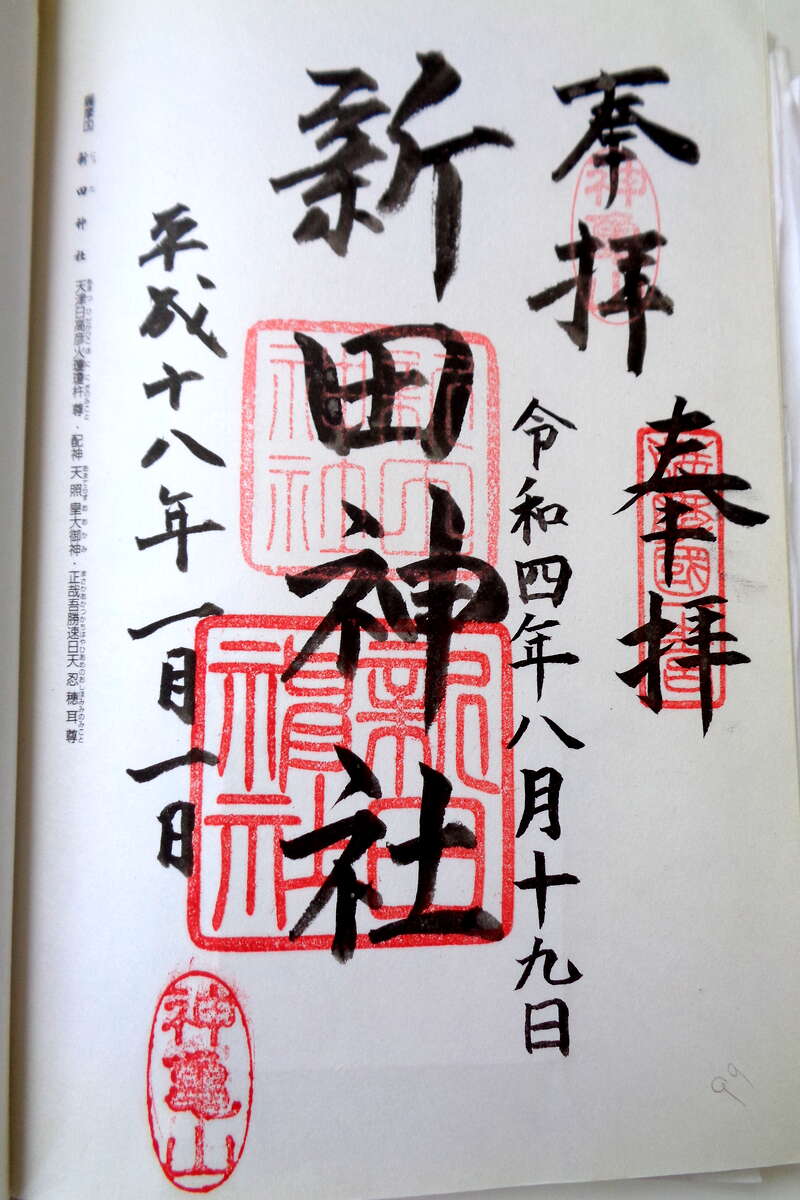 奉拝
奉拝
令和四年八月十九日
新田神社
新田神社
新田神社
平成十八年一月一日
神亀山
薩摩国 新田神社 天津日高彦火瓊瓊杵尊・配神 天照皇大御神・正哉吾勝速日天忍穂耳尊
99